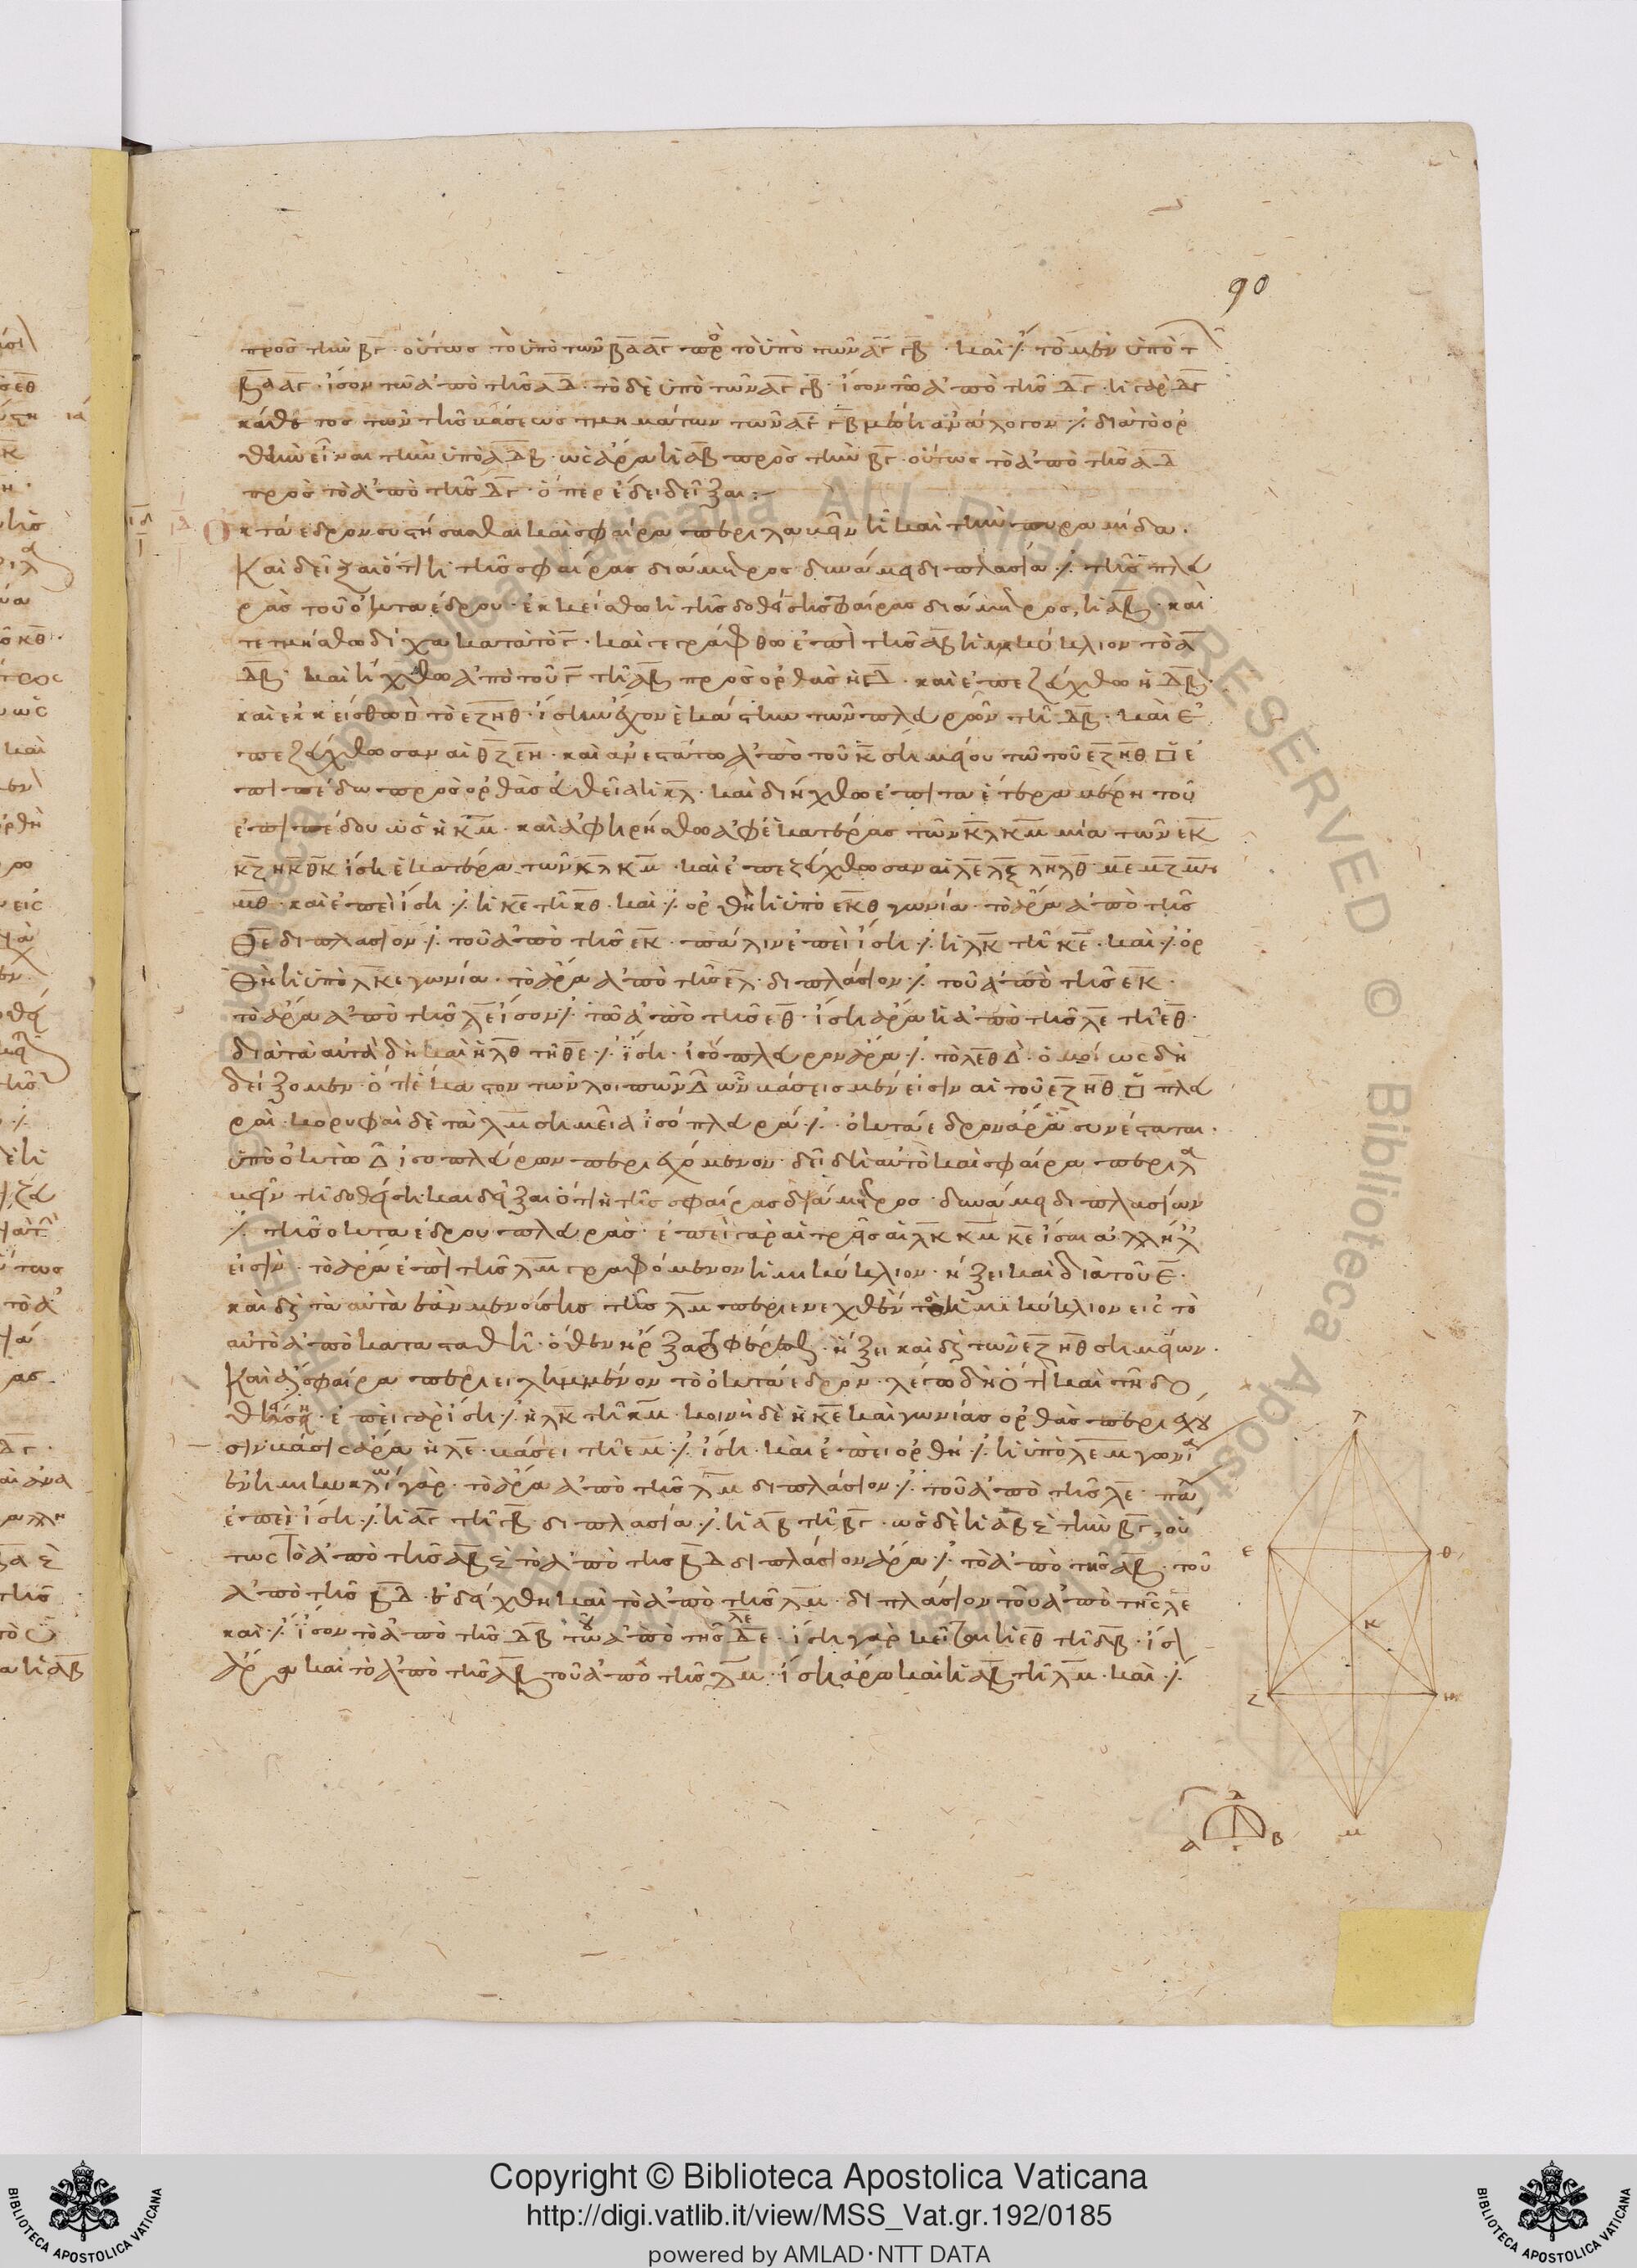 90
πρὸς τὴν ΒΓ· οὕτως τὸ ὑπὸ τῶν ΒΑ ΑΓ πρὸς τὸ ὑπὸ τῶν ΑΓ ΓΒ· καὶ ⁒ τὸ μὲν ὑπὸ τ
ΒΑ ΑΓ· ἴσον τῶ ἀπὸ τῆς ΑΔ· τὸ δὲ ὑπὸ τῶν ΑΓ ΓΒ· ἴσον τῶ ἀπὸ τῆς ΔΓ· ἡ γὰρ ΔΓ
κάθετος τῶν τῆς βάσεως τμημάτων τῶν ΑΓ ΓΒ μέση ἀνάλογον ⁒ διὰ τὸ ὀρ
θὴν εἶναι τὴν ὑπὸ ΑΔΒ· ὡς ἄρα ἡ ΑΒ πρὸς τὴν ΒΓ· οὕτως τὸ ἀπὸ τῆς ΑΔ
πρὸς τὸ ἀπὸ τῆς ΔΓ· ὅπερ ἔδει δεῖξαι :~
ιδ Ὀκτάεδρον συστήσασθαι καὶ σφαίρα περιλαβεῖν ἧ καὶ τὴν πυραμίδα·
Καὶ δεῖξαι ὅτι ἡ τῆς σφαίρας διάμετρος δυνάμει διπλασία ⁒ τῆς πλευ
ρᾶς τοῦ ὀκταέδρου· ἐκκείσθω ἡ τῆς δοθείσης σφαίρας διάμετρος, ἡ ΑΒ· καὶ
τετμήσθω δίχα κατὰ τὸ Γ· καὶ γεγράφθω ἐπὶ τῆς ΑΒ ἡμικύκλιον τὸ Α
ΔΒ· καὶ ἤχθω ἀπὸ τοῦ Γ τῆ ΑΒ πρὸς ὀρθὰς ἡ ΓΔ· καὶ ἐπεζεύχθω ἡ ΔΒ·
καὶ ἐκκείσθω □ τὸ ΕΖΗΘ· ἴσην ἔχον ἑκάστην τῶν πλευρῶν τῆ ΔΒ· καὶ ἐ
πεζεύχθωσαν αἱ ΘΖ ΕΗ· καὶ ἀνεστάτω ἀπὸ τοῦ Κ σημείου τῶ τοῦ ΕΖΗΘ □ ἐ
πιπέδω πρὸς ὀρθὰς εὐθεῖα ἡ ΚΛ· καὶ διήχθω ἐπὶ τὰ ἕτερα μέρη τοῦ
ἐπιπέδου ὡς ἡ ΚΜ· καὶ ἀφηρήσθω ἀφ' ἑκατέρας τῶν ΚΛ ΚΜ μία τῶν ΕΚ
ΚΖ ΗΚ ΘΚ ἴση ἑκατέρα τῶν ΚΛ ΚΜ· καὶ ἐπεζεύχθωσαν αἱ ΛΕ ΛΖ ΛΗ ΛΘ ΜΕ ΜΖ ΜΗ
ΜΘ· καὶ ἐπεὶ ἴση ⁒ ἡ ΚΕ τῆ ΚΘ· καὶ ⁒ ὀρθὴ ἡ ὑπὸ ΕΚΘ γωνία· τὸ ἄρα ἀπὸ τῆς
ΘΕ διπλάσιον ⁒ τοῦ ἀπὸ τῆς ΕΚ· πάλιν ἐπεὶ ἴση ⁒ ἡ ΛΚ τῆ ΚΕ· καὶ ⁒ ὀρ
θὴ ἡ ὑπὸ ΛΚΕ γωνία· τὸ ἄρα ἀπὸ τῆς ΕΛ· διπλάσιον ⁒ τοῦ ἀπὸ τῆς ΕΚ·
τὸ ἄρα ἀπὸ τῆς ΛΕ ἴσον ⁒ τῶ ἀπὸ τῆς ΕΘ· ἴση ἄρα ἡ ἀπὸ τῆς ΛΕ τῆ ΕΘ·
διὰ τὰ αὐτὰ δὴ καὶ ἡ ΛΘ τῆ ΘΕ ⁒ ἴση· ἰσόπλευρον ἄρα ⁒ τὸ ΛΕΘ Δ· ὁμοίως δὴ
δείξομεν· ὅτι ἕκαστον τῶν λοιπῶν Δ ὧν βάσεις μέν εἰσιν αἱ τοῦ ΕΖΗΘ □ πλευ
ραὶ· κορυφαὶ δὲ τὰ ΛΜ σημεῖα ἰσόπλευρά ⁒· ὀκτάεδρον ἄρα συνέσταται·
ὑπὸ ὀκτὼ Δ ἰσοπλεύρων περιεχόμενον· δεῖ δὴ αὐτὸ καὶ σφαίρα περιλα
βεῖν τῆ δοθείση· καὶ δεῖξαι ὅτι ἡ τῆς σφαίρας διάμετρος· δυνάμει διπλασίων
⁒ τῆς ὀκταέδρου πλευρᾶς· ἐπεὶ γὰρ αἱ τρεῖς αἱ ΛΚ ΚΜ ΚΕ ἴσαι ἀλλήλ
εἰσὶν· τὸ ἄρα ἐπὶ τῆς ΛΜ γραφόμενον ἡμικύκλιον· ἥξει καὶ διὰ τοῦ Ε·
καὶ διὰ τὰ αὐτὰ ἐὰν μενούσης τῆς ΛΜ περιενεχθὲν τὸ ἡμικύκλιον εἰς τὸ
αὐτὸ ἀποκατασταθῆ· ὅθεν ἤρξατο φέρεσθαι· ἥξει καὶ διὰ τῶν ΕΖΗΘ σημείων·
Καὶ ἔσται σφαίρα περιειλημμένον τὸ ὀκτάεδρον· λέγω δὴ ὅτι καὶ τῆ δο
θείση· ἐπεὶ γὰρ ἴση ⁒ ἡ ΛΚ τῆ ΚΜ· κοινὴ δὲ ἡ ΚΕ καὶ γωνίας ὀρθὰς περιέχου
σιν βάσις ἄρα ἡ ΛΕ· βάσει τῆ ΕΜ· ⁒ ἴση· καὶ ἐπεὶ ὀρθή ⁒ ἡ ὑπὸ ΛΕΜ γωνία
ἐν ἡμικυκλίω γάρ· τὸ ἄρα ἀπὸ τῆς ΛΜ διπλάσιον ⁒ τοῦ ἀπὸ τῆς ΛΕ· πάλ
ἐπεὶ ἴση ⁒ ἡ ΑΓ τῆ ΓΒ· διπλασία ⁒ ἡ ΑΒ τῆ ΒΓ· ὡς δὲ ἡ ΑΒ πρὸς τὴν ΒΓ, οὕ
τως τὸ ἀπὸ τῆς ΑΒ πρὸς τὸ ἀπὸ τῆς ΒΔ διπλάσιον ἄρα ⁒ τὸ ἀπὸ τῆς ΑΒ· τοῦ
ἀπὸ τῆς ΒΔ· ἐδείχθη καὶ τὸ ἀπὸ τῆς ΛΜ· διπλάσιον τοῦ ἀπὸ τῆς ΛΕ
καὶ ⁒ ἴσον τὸ ἀπὸ τῆς ΔΒ τῶ ἀπὸ τῆς ΛΕ· ἴση γὰρ κεῖται ἡ ΕΘ τῆ ΔΒ· ἴσ
ἄρα καὶ τὸ ἀπὸ τῆς ΑΒ τοῦ ἀπὸ τῆς ΛΜ· ἴση ἄρα καὶ ἡ ΑΒ τῆ ΛΜ· καὶ ⁒
Λ
Ε Θ
Κ
Ζ Η
Μ
Δ
Α Γ Β
ALL RIGHTS RESERVED © Biblioteca Apostolica Vaticana
Copyright © Biblioteca Apostolica Vaticana
http://digi.vatlib.it/view/MSS_Vat.gr.192/0185
powered by AMLAD·NTT DATA
BIBLIOTECA APOSTOLICA VATICANA
BIBLIOTECA APOSTOLICA VATICANA